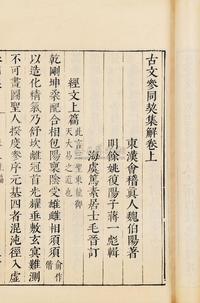 古文參同契集解卷上
東漢會稽真人魏伯陽著
明餘姚復陽子蔣一彪輯
海虞篤素居士毛晉訂
經文上篇
此言三聖乘龍御
天大易之道也
乾剛坤柔配合相包陽稟陰受雄雌相須須
俞作
偕
以造化精氣乃舒坎離冠首光耀垂敷玄冥難測
不可畫圖聖人揆度參序元基四者混沌徑入虛